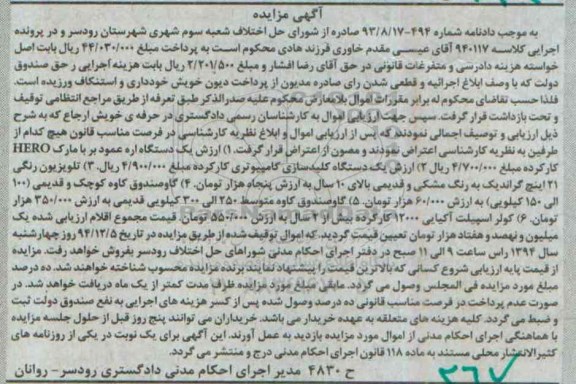 آگهی مزایده
به موجب دادنامه شماره ۴۹۴-۹۳/۸/۱۷ صادره از شورای حل اختلاف شعبه سوم شهری شهرستان رودسر و در پرونده
اجرایی کلاسه ۹۴۰۱۱۷ آقای عیسی مقدم خاوری فرزند هادی محکوم است به پرداخت مبلغ ۴۴/۰۳۰/۰۰۰ ریال بابت اصل
خواسته هزینه دادرسی و متفرعات قانونی در حق آقای رضا افشار و مبلغ ۲/۲۰۱/۵۰۰ ریال بابت هزینه اجرایی در حق صندوق
دولت که با وصف ابلاغ اجرائیه و قطعی شدن رای صادره مدیون از پرداخت دیون خویش خودداری و استنکاف ورزیده است.
فلذا حسب تقاضای محکوم له برابر مقررات اموال بلامعارض محکوم علیه صدرالذکر طبق تعرفه از طریق مراجع انتظامی توقیف
و تحت بازداشت قرار گرفت. سپس جهت ارزیابی اموال به کارشناسان رسمی دادگستری در حرفه ی خویش ارجاع که به شرح
ذیل ارزیابی و توصیف اجمالی نمودند که پس از ارزیابی اموال و ابلاغ نظریه کارشناسی در فرصت مناسب قانون هیچ کدام از
طرفین به نظریه کارشناسی اعتراض نمودند و مصون از اعتراض قرار گرفت. ۱) ارزش یک دستگاه اره عمود بر با مارک HERO
کارکرده مبلغ ۴/۷۰۰/۰۰۰ ریال ۲) ارزش یک دستگاه کلیه سازی کامپیوتری کارکرده مبلغ ۴/۹۰۰/۰۰۰ ریال. ۳) تلویزیون رنگی
۲۱ اینچ گراندیک به رنگ مشکی و قدیمی بالای ۱۰ سال به ارزش پنجاه هزار تومان. ۴) گاوصندوق کاوه کوچک و قدیمی (۱۰۰
الی ۱۵۰ کیلویی) به ارزش ۶۰/۰۰۰ هزار تومان. ۵) گاوصندوق کاوه متوسط ۲۵۰ الی ۳۰۰ کیلویی قدیمی به ارزش ۳۵۰/۰۰۰ هزار
تومان. ۶) کولر اسپیلت آکیایی ۱۲۰۰۰ کارکرده بیش از ۲ سال به ارزش ۵۵۰/۰۰۰ تومان. قیمت مجموع اقلام ارزیابی شده یک
میلیون و نهصد و هفتاد هزار تومان تعیین قیمت گردید. که اموال توقیف شده از طریق مزایده در تاریخ ۹۴/۱۲/۵ روز چهارشنبه
سال ۱۳۹۴ راس ساعت ۹ الی ۱۱ صبح در دفتر اجرای احکام مدنی شوراهای حل اختلاف رودسر بفروش خواهد رفت. مزایده
از قیمت پایه ارزیابی شروع کسانی که بالاترین قیمت را پیشنهاد نمایند برنده مزایده محسوب شناخته خواهند شد. ده درصد
مبلغ مورد مزایده فی المجلس وصول می گردد. مابقی مبلغ مورد مزایده ظرف مدت کمتر از یک ماه دریافت خواهد شد. در
صورت عدم پرداخت در فرصت مناسب قانونی ده درصد وصول شده پس از کسر هزینه های اجرایی به نفع صندوق دولت ثبت
و ضبط می گردد. کلیه هزینه های متعلقه به عهده خریدار می باشد. خریداران می توانند پنج روز قبل از حلول جلسه مزایده
با هماهنگی اجرای احکام مدنی از اموال مورد مزایده بازدید به عمل آورند. این آگهی برای یک نوبت در یکی از روزنامه های
کثیرالانتشار محلی مستند به ماده ۱۱۸ قانون اجرای احکام مدنی درج و منتشر می گردد.
ح ۴۸۳۰ مدیر اجرای احکام مدنی دادگستری رودسر- روانان
۲۶۷